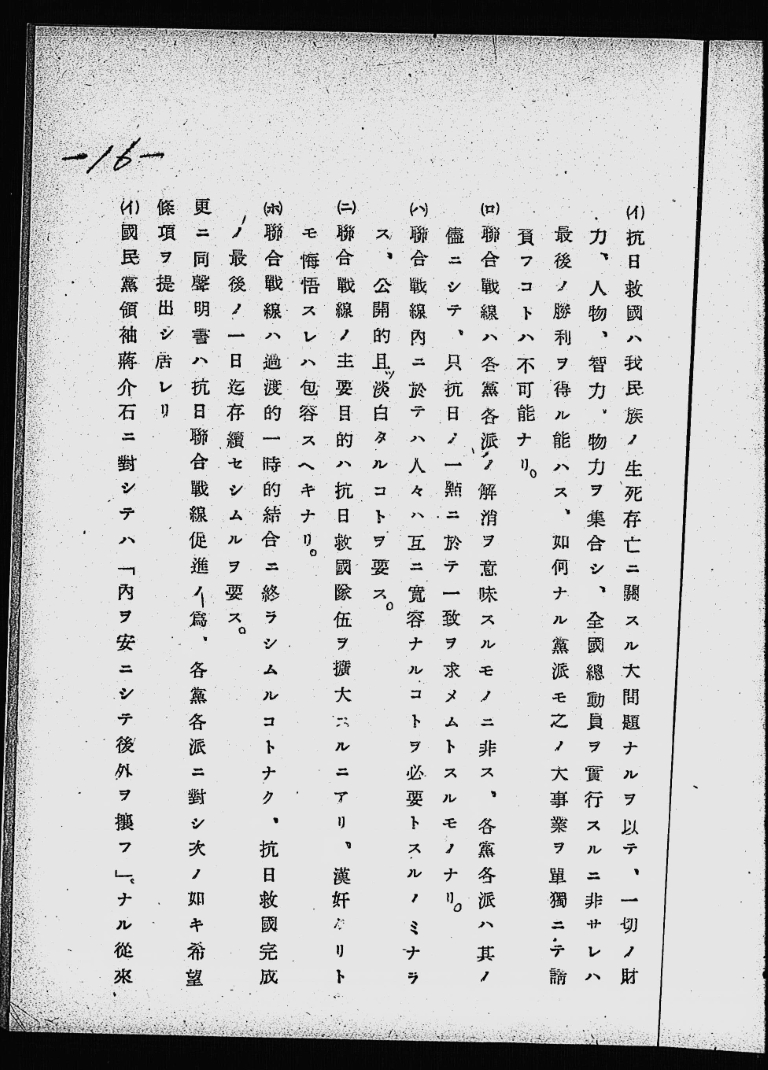 -16-
(イ)抗日救國ハ我民族ノ生死存亡ニ關スル大問題ナルヲ以テ、一切ノ財
力、人物、智力、物力ヲ集合シ、全國總動員ヲ實行スルニ非サレハ
最後ノ勝利ヲ得ル能ハス、如何ナル黨派モ之ノ大事業ヲ單獨ニテ請
負フコトハ不可能ナリ。
(ロ)聯合戰線ハ各黨各派ノ解消ヲ意味スルモノニ非ス、各黨各派ハ其ノ
儘ニシテ、只抗日ノ一點ニ於テ一致ヲ求メムトスルモノナリ。
(ハ)聯合戰線內ニ於テハ人々ハ互ニ寬容ナルコトヲ必要トスルノミナラ
ス、公開的且ツ淡白タルコトヲ要ス。
(ニ)聯合戰線ノ主要目的ハ抗日救國隊伍ヲ擴大スルニアリ、漢奸タリト
モ悔悟スレハ包容スヘキナリ。
(ホ)聯合戰線ハ過渡的一時的結合ニ終ラシムルコトナク、抗日救國完成
ノ最後ノ一日迄存續セシムルヲ要ス。
更ニ同聲明書ハ抗日聯合戰線促進ノ爲、各黨各派ニ對シ次ノ如キ希望
條項ヲ提出シ居レリ
(イ)國民黨領袖蔣介石ニ對シテハ「內ヲ安ニシテ後外ヲ攘フ」ナル從來